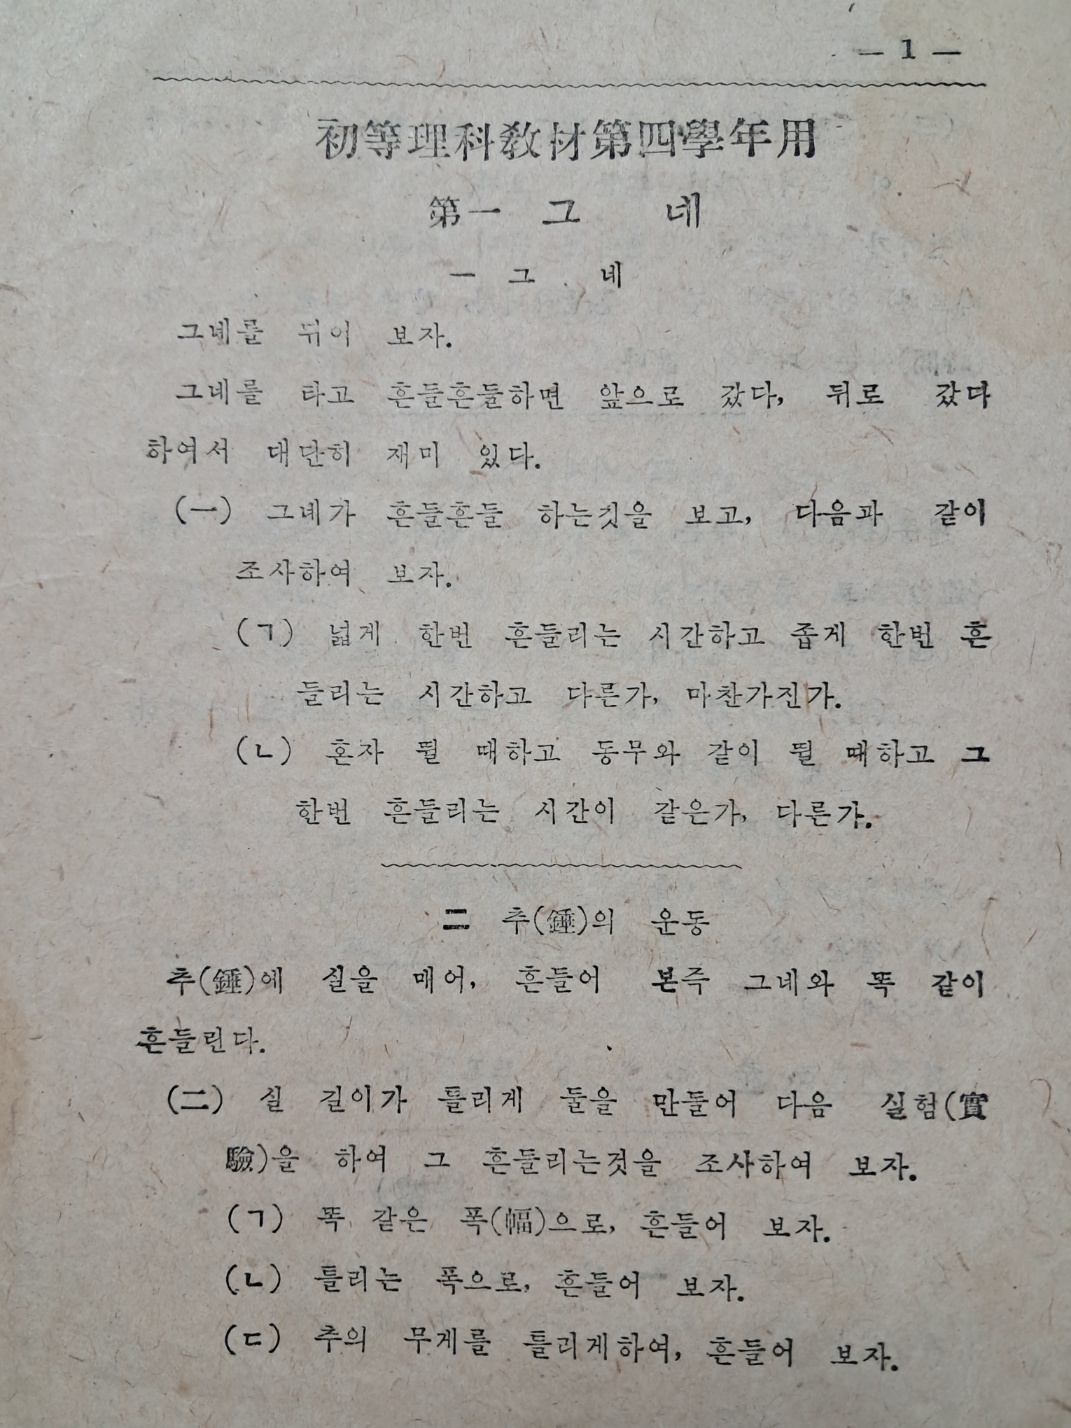 — 1 —
初等理科敎材第四學年用
第一 그 네
一 그 네
그네를 뛰어 보자.
그네를 타고 흔들흔들하면 앞으로 갔다, 뒤로 갔다
하여서 대단히 재미 있다.
(一) 그네가 흔들흔들 하는것을 보고, 다음과 같이
조사하여 보자.
(ㄱ) 넓게 한번 흔들리는 시간하고 좁게 한번 흔
들리는 시간하고 다른가, 마찬가진가.
(ㄴ) 혼자 뛸 때하고 동무와 같이 뛸 때하고 그
한번 흔들리는 시간이 같은가, 다른가.
二 추(錘)의 운동
추(錘)에 실을 매어, 흔들어 본즉 그네와 똑 같이
흔들린다.
(二) 실 길이가 틀리게 둘을 만들어 다음 실험(實
驗)을 하여 그 흔들리는것을 조사하여 보자.
(ㄱ) 똑 같은 폭(幅)으로, 흔들어 보자.
(ㄴ) 틀리는 폭으로, 흔들어 보자.
(ㄷ) 추의 무게를 틀리게하여, 흔들어 보자.